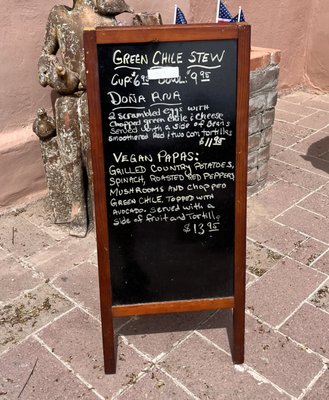 GREEN CHILE STEW
CUP: $6.95 BOWL: $9.95
DOÑA ANA
2 Scrambled eggs with
chopped green chile & cheese
Served with a side of Beans
smothered Red & two Corn tortillas
$11.95
VEGAN PAPAS:
GRILLED COUNTRY POTATOES,
SPINACH, ROASTED RED PEPPERS
MUSHROOMS AND CHOPPED
GREEN CHILE, TOPPED WITH
AVOCADO. SERVED WITH A
side of fruit and Tortilla
$13.95